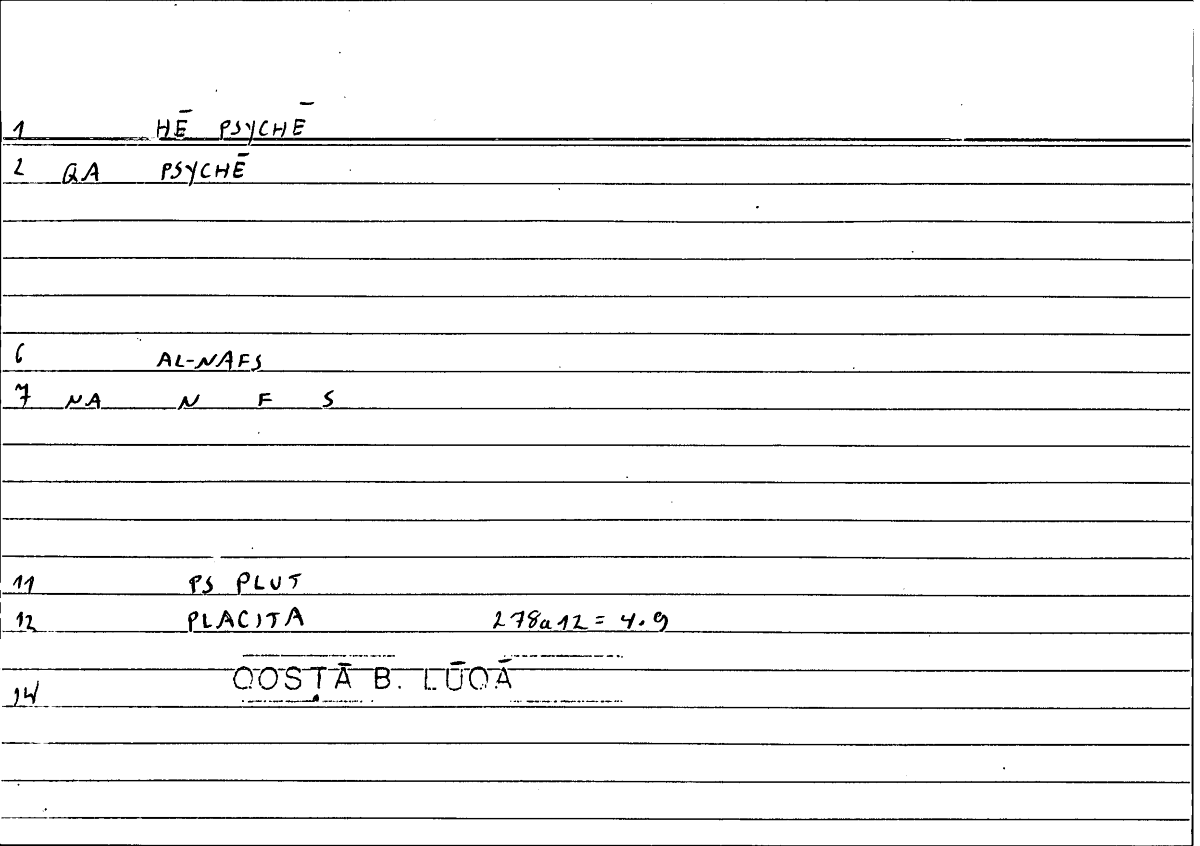 1 HĒ PSYCHĒ
2 QA PSYCHĒ
6 AL-NAFS
7 NA N F S
11 PS PLUT
12 PLACITA 278a12 = 4.9
14 QOSṬĀ B. LŪQĀ